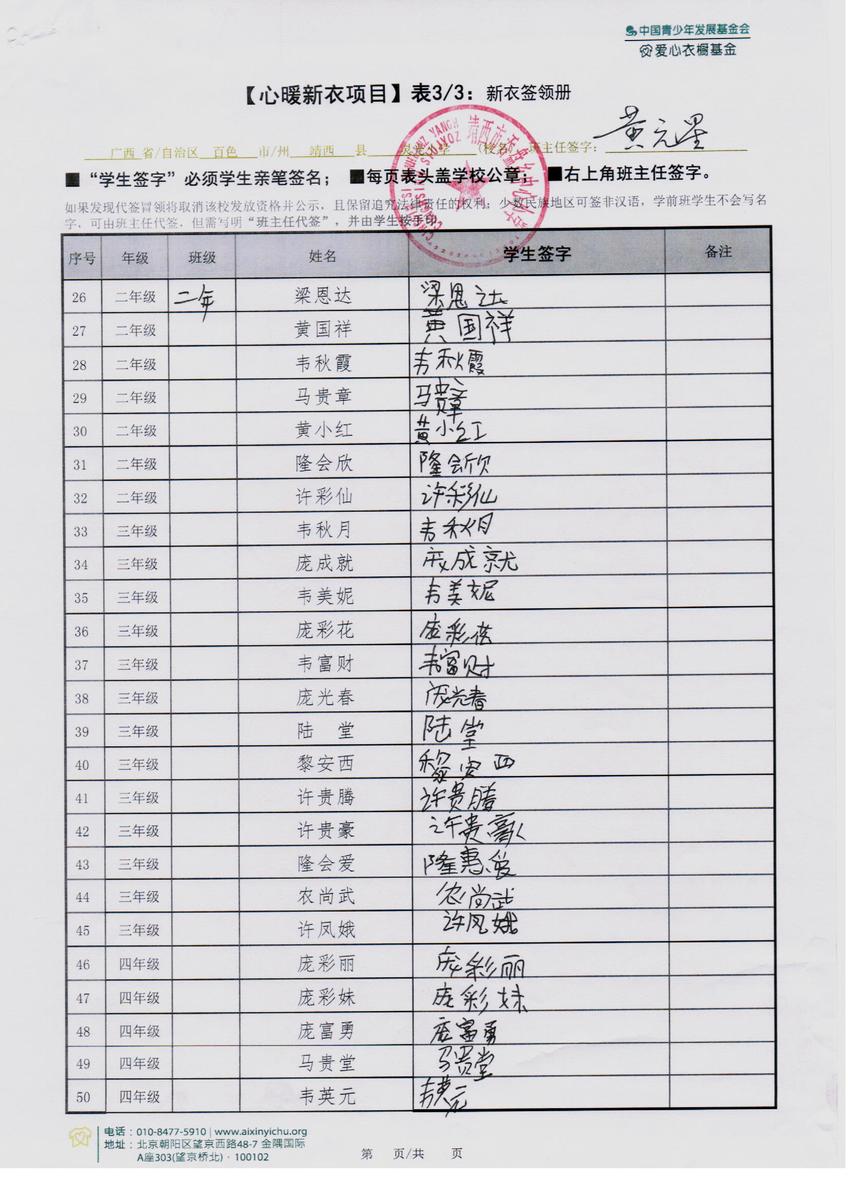 中国青少年发展基金会
爱心衣橱基金
【心暖新衣项目】表3/3：新衣签领册
广西 省/自治区 百色 市/州 靖西 县 (校名) 班主任签字： 黄元星
■“学生签字”必须学生亲笔签名； ■每页表头盖学校公章； ■右上角班主任签字。
如果发现代签冒领将取消该校发放资格并公示，且保留追究法律责任的权利；少数民族地区可签非汉语，学前班学生不会写名
字，可由班主任代签，但需写明“班主任代签”，并由学生按手印。
序号 年级 班级 姓名 学生签字 备注
26 二年级 二年 梁恩达 梁恩达
27 二年级 黄国祥 黄国祥
28 二年级 韦秋霞 韦秋霞
29 二年级 马贵章 马贵章
30 二年级 黄小红 黄小红
31 二年级 隆会欣 隆会欣
32 二年级 许彩仙 许彩仙
33 三年级 韦秋月 韦秋月
34 三年级 庞成就 庞成就
35 三年级 韦美妮 韦美妮
36 三年级 庞彩花 庞彩花
37 三年级 韦富财 韦富财
38 三年级 庞光春 庞光春
39 三年级 陆 堂 陆堂
40 三年级 黎安西 黎安西
41 三年级 许贵腾 许贵腾
42 三年级 许贵豪 许贵豪
43 三年级 隆会爱 隆惠爱
44 三年级 农尚武 农尚武
45 三年级 许凤娥 许凤娥
46 四年级 庞彩丽 庞彩丽
47 四年级 庞彩妹 庞彩妹
48 四年级 庞富勇 庞富勇
49 四年级 马贵堂 马贵堂
50 四年级 韦英元 韦英元
电话：010-8477-5910 | www.aixinyichu.org
地址：北京朝阳区望京西路48-7 金隅国际
A座303(望京桥北)·100102
第 页/共 页